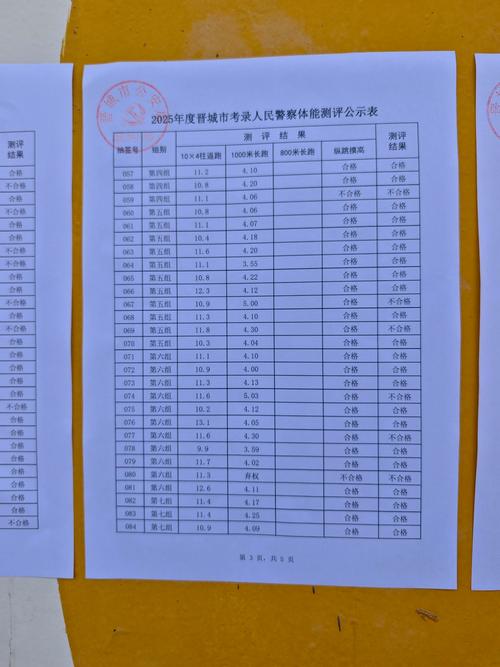 测评
结果
合格
不合格
合格
不合格
合格
合格
不合格
不合格
合格
合格
不合格
合格
合格
合格
合格
合格
合格
合格
不合格
合格
合格
合格
合格
合格
合格
合格
合格
不合格
城市公安
2025年度晋城市考录人民警察体能测评公示表
抽签号 组别 测评结果 测评结果
10×4往返跑 1000米长跑 800米长跑 纵跳摸高
057 第四组 11.2 4.10 合格 合格
058 第四组 10.8 4.20 合格 合格
059 第四组 11.1 4.06 不合格 不合格
060 第五组 10.8 4.06 合格 合格
061 第五组 11.1 4.07 合格 合格
062 第五组 10.4 4.18 合格 合格
063 第五组 11.6 4.20 合格 合格
064 第五组 11.1 3.55 合格 合格
065 第五组 10.8 4.22 合格 合格
066 第五组 12.3 4.12 合格 合格
067 第五组 10.9 5.00 合格 不合格
068 第五组 11.3 4.10 合格 合格
069 第五组 11.8 4.30 合格 不合格
070 第五组 10.3 4.04 合格 合格
071 第六组 11.1 4.10 合格 合格
072 第六组 10.9 4.00 合格 合格
073 第六组 11.3 4.13 合格 合格
074 第六组 11.6 5.03 合格 不合格
075 第六组 10.2 4.12 合格 合格
076 第六组 13.1 4.05 合格 合格
077 第六组 11.6 4.30 合格 不合格
078 第六组 9.9 3.59 合格 合格
079 第六组 11.7 4.02 合格 合格
080 第六组 11.3 弃权 不合格 不合格
081 第六组 12.6 4.11 合格 合格
082 第七组 11.4 4.17 合格 合格
083 第七组 11.4 4.25 合格 合格
084 第七组 10.9 4.09 合格 合格
第 3 页，共 5 页